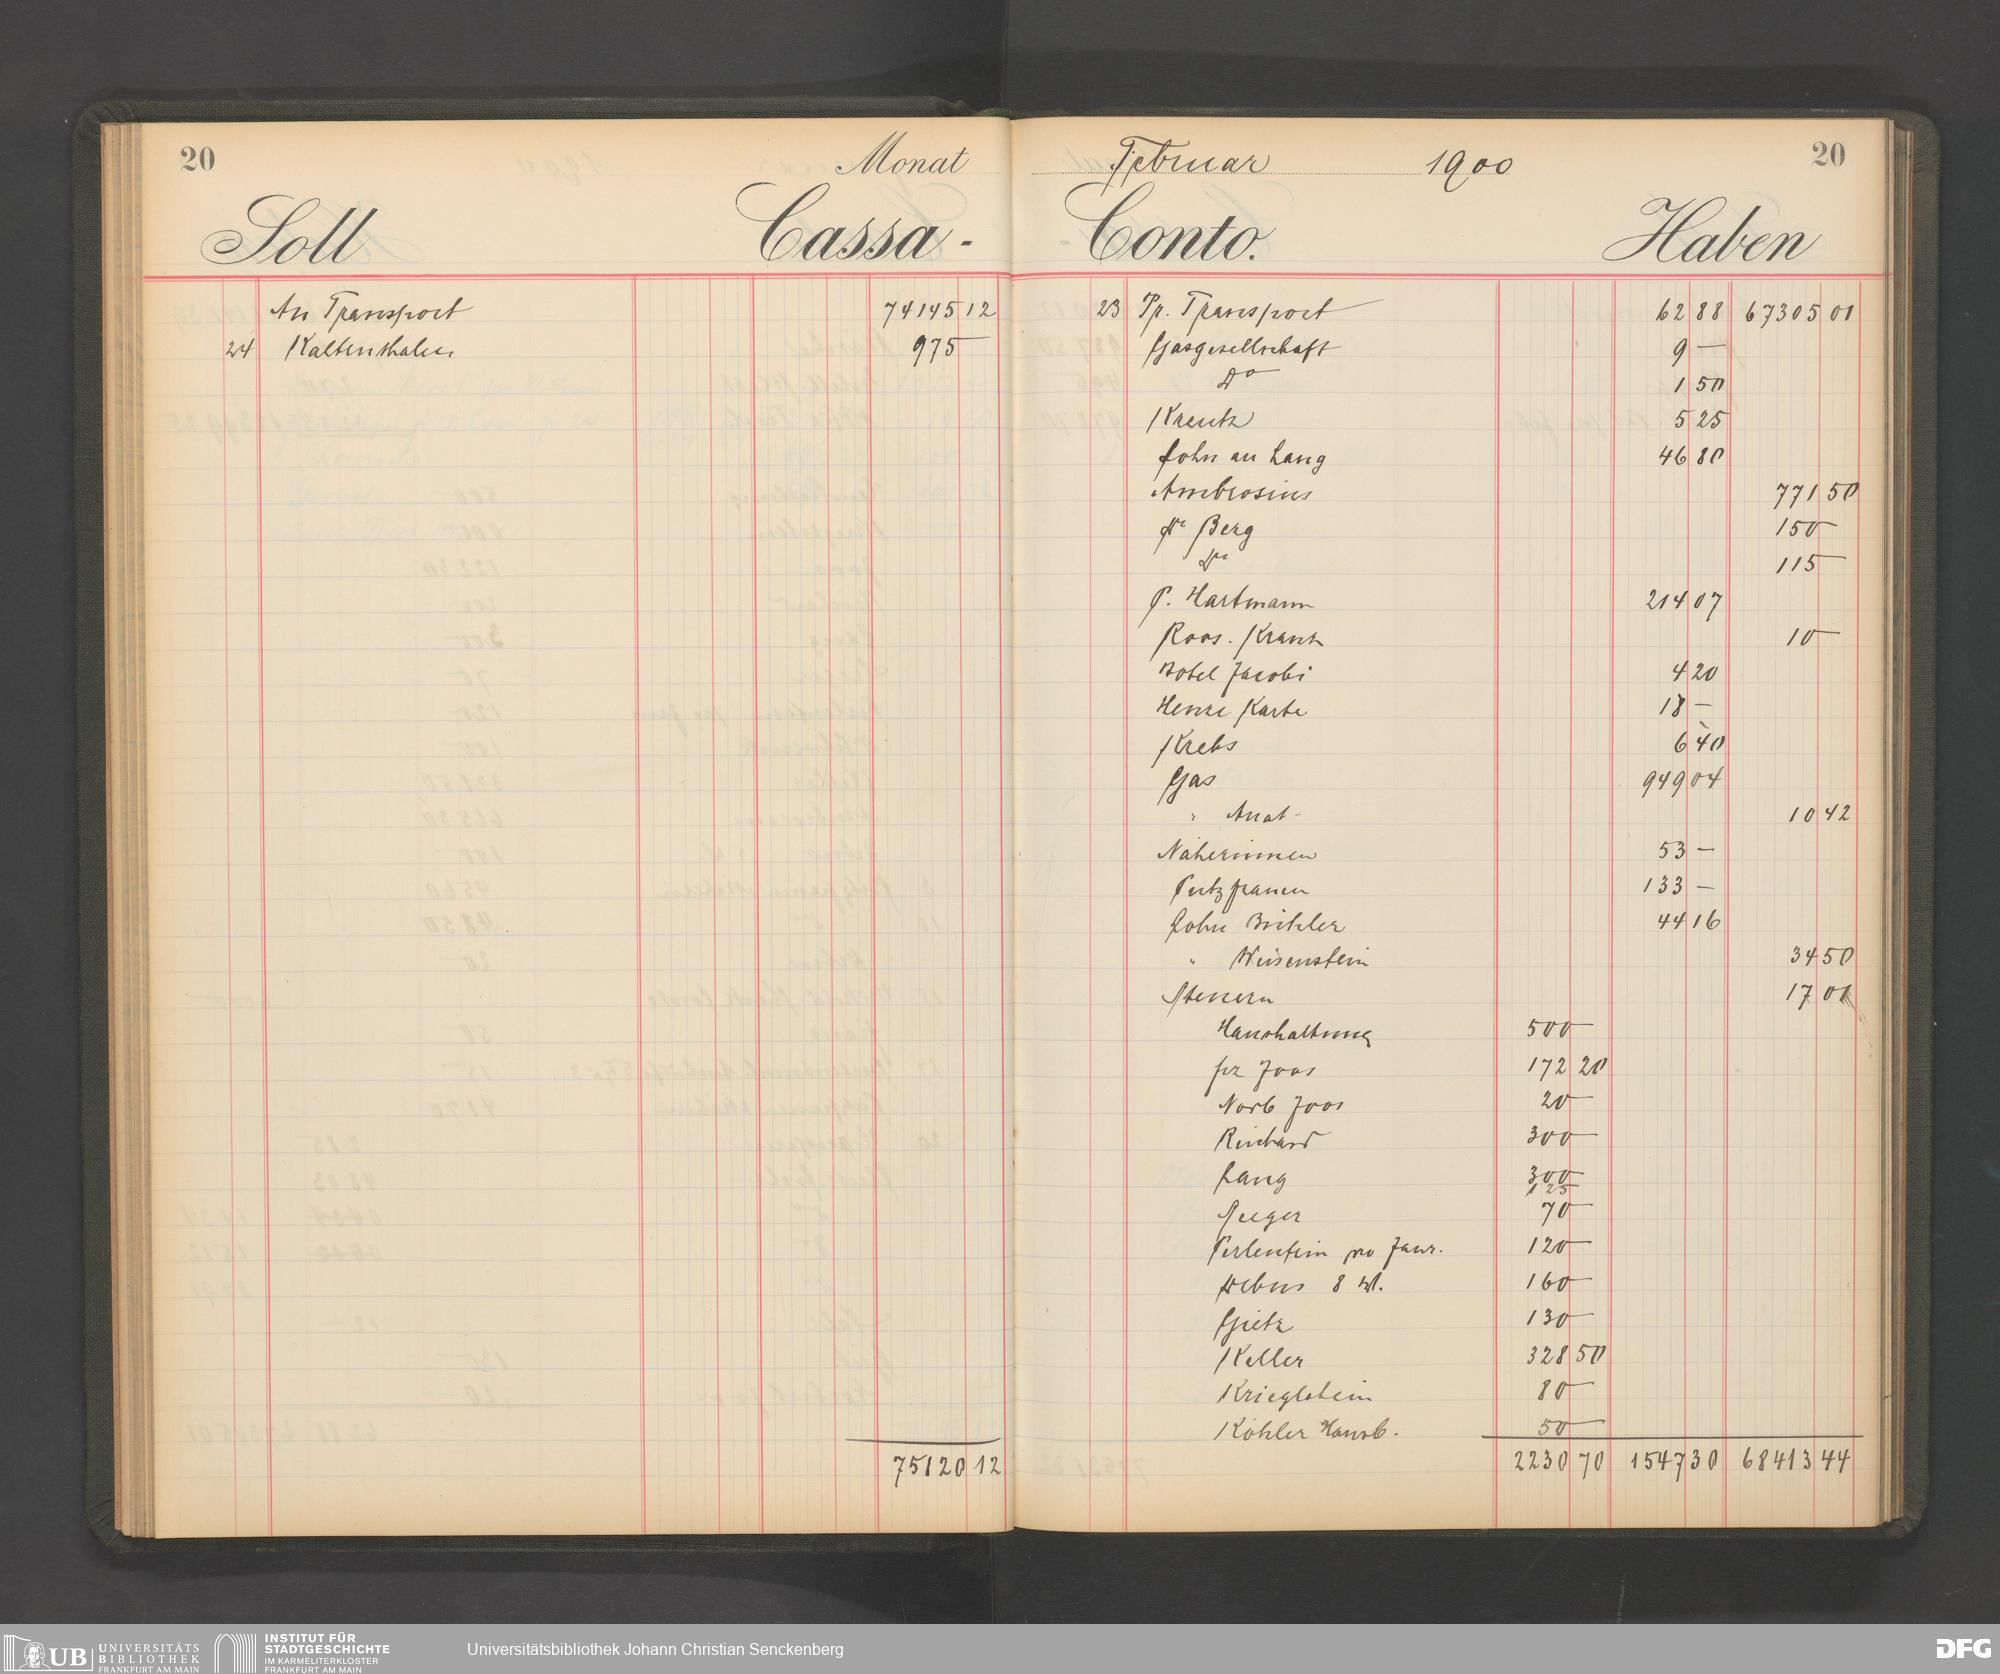 20 Monat Februar 1900 20
Soll Cassa - Conto. Haben
An Transport 74145 12
24 Kaltenthaler 975 —
75120 12
23 Pr. Transport 62 88 67305 01
Gasgesellschaft 9 —
Do 1 50
Kreutz 5 25
John an Lang 46 80
Ambrosius 771 50
Dr Berg 150 —
Do 115 —
P. Hartmann 214 07
Roos. Krantz 10 —
Hotel Jacobi 4 20
Henze Karte 18 —
Krebs 6 40
Gas 949 04
" Anat. 10 42
Näherinnen 53 —
Putzfrauen 133 —
Lohn 44 16
" Weisenstein 34 50
Steuern 17 01
Haushaltung 500 —
pr Joos 172 20
Norb Joos 20 —
Reinhard 300 —
Lang 300 —
125
Seeger 70 —
Perlenfein pro Janr. 120 —
Debus 8 W. 160 —
Gietz 130 —
Keller 328 50
Krieglstein 80 —
Köhler Hausb. 50 —
2230 70 1547 30 68413 44
UB UNIVERSITÄTS
BIBLIOTHEK
FRANKFURT AM MAIN
INSTITUT FÜR
STADTGESCHICHTE
IM KARMELITERKLOSTER
FRANKFURT AM MAIN
Universitätsbibliothek Johann Christian Senckenberg
DFG